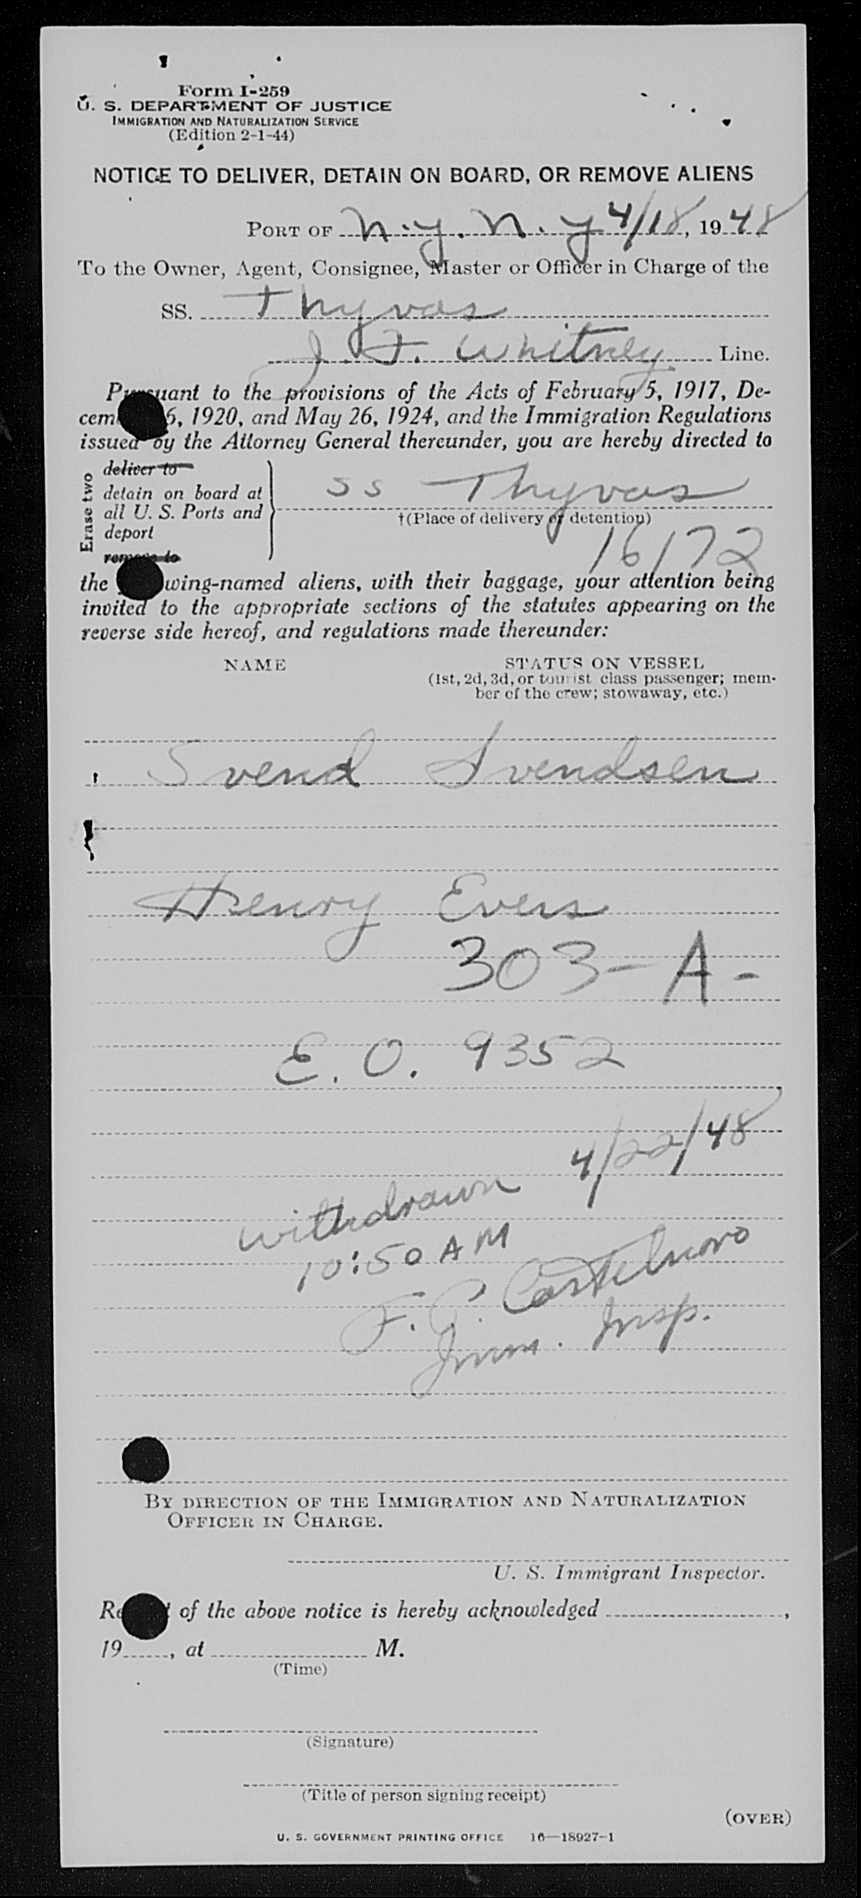 Form I-259
U. S. DEPARTMENT OF JUSTICE
IMMIGRATION AND NATURALIZATION SERVICE
(Edition 2-1-44)
NOTICE TO DELIVER, DETAIN ON BOARD, OR REMOVE ALIENS
PORT OF N.Y. N.Y 4/18, 1948
To the Owner, Agent, Consignee, Master or Officer in Charge of the
SS. Thyvas
J. F. Whitney Line.
Pursuant to the provisions of the Acts of February 5, 1917, De-
cem 6, 1920, and May 26, 1924, and the Immigration Regulations
issued by the Attorney General thereunder, you are hereby directed to
Erase two
deliver to
detain on board at
all U. S. Ports and
deport
remove to
SS Thyvas
†(Place of delivery or detention)
16172
the wing-named aliens, with their baggage, your attention being
invited to the appropriate sections of the statutes appearing on the
reverse side hereof, and regulations made thereunder:
NAME STATUS ON VESSEL
(1st, 2d, 3d, or tourist class passenger; mem-
ber of the crew; stowaway, etc.)
Svend Svendsen
Henry Evers
303-A-
E. O. 9352
4/22/48
withdrawn
10:50 AM
F. G. Castelnovo
Imm. Insp.
BY DIRECTION OF THE IMMIGRATION AND NATURALIZATION
OFFICER IN CHARGE.
U. S. Immigrant Inspector.
Re t of the above notice is hereby acknowledged ,
19 , at M.
(Time)
(Signature)
(Title of person signing receipt)
(OVER)
U. S. GOVERNMENT PRINTING OFFICE 16—18927-1